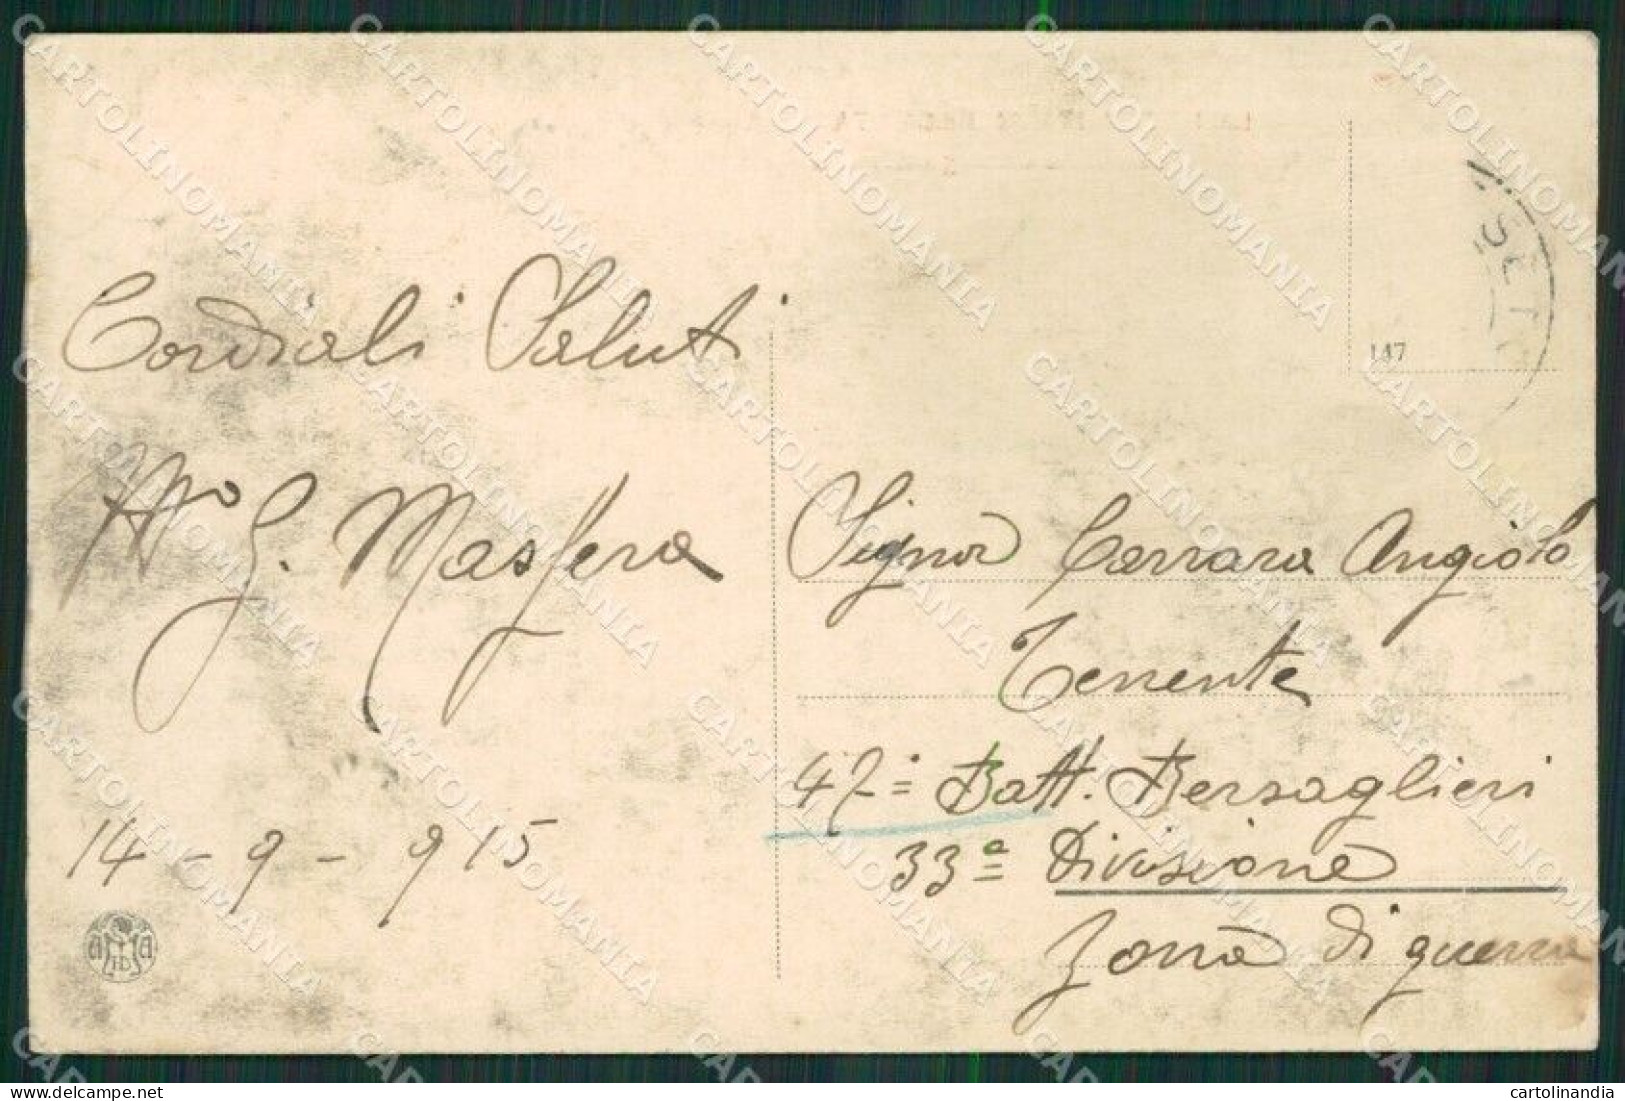 Cordiali Saluti
G. Massera
14 - 9 - 915
147
SET
Signor Carrara Angiolo
Tenente
47° Batt. Bersaglieri
33a Divisione
Zona di guerra
CARTOLINOMANIA
cartolinandia